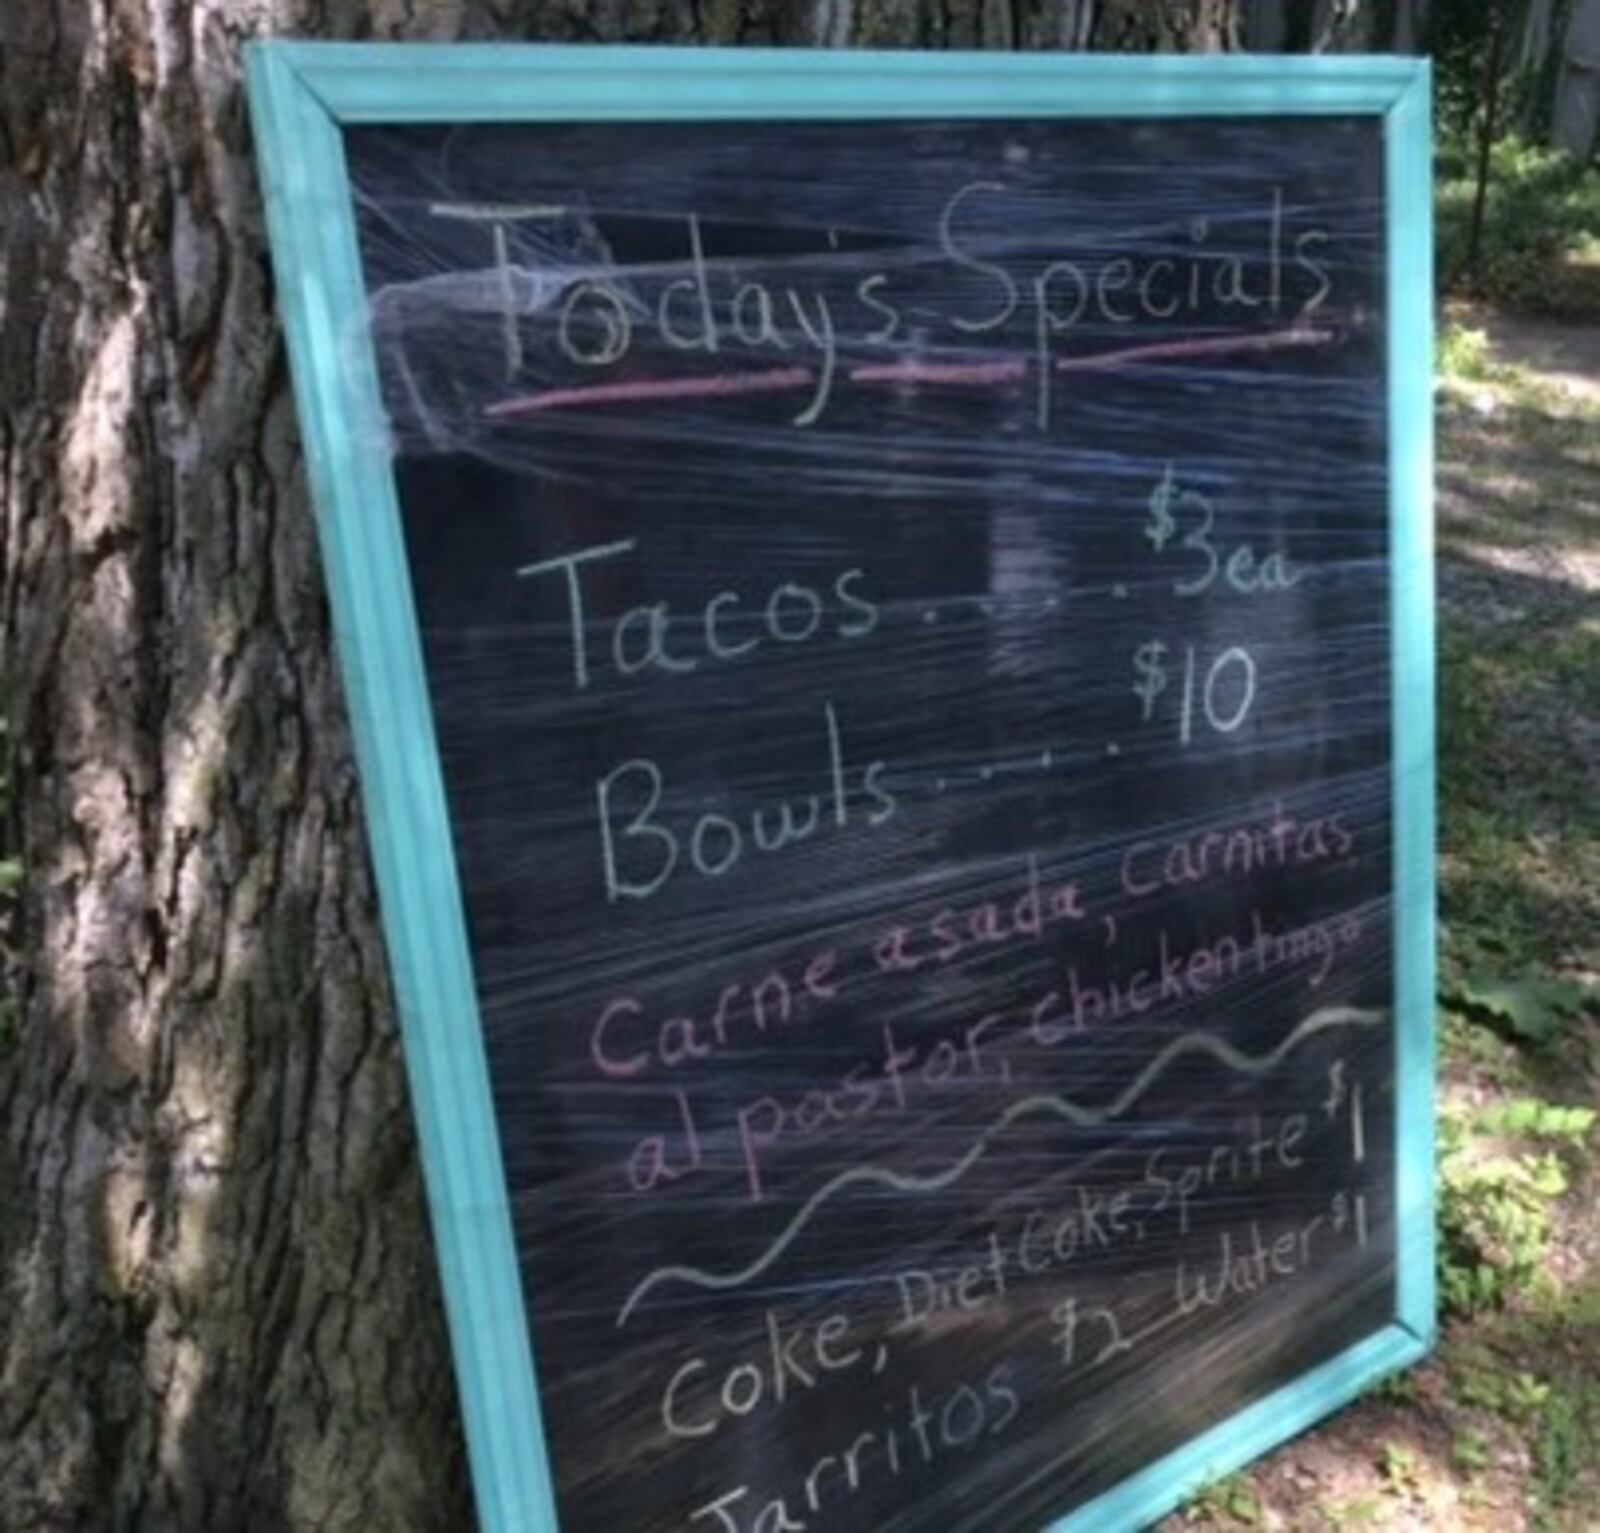 Today's Specials
Tacos . . . . $3ea
Bowls . . . . $10
Carne asada, carnitas
al pastor, chicken tinga
Coke, Diet Coke, Sprite $1
Jarritos $2 Water $1